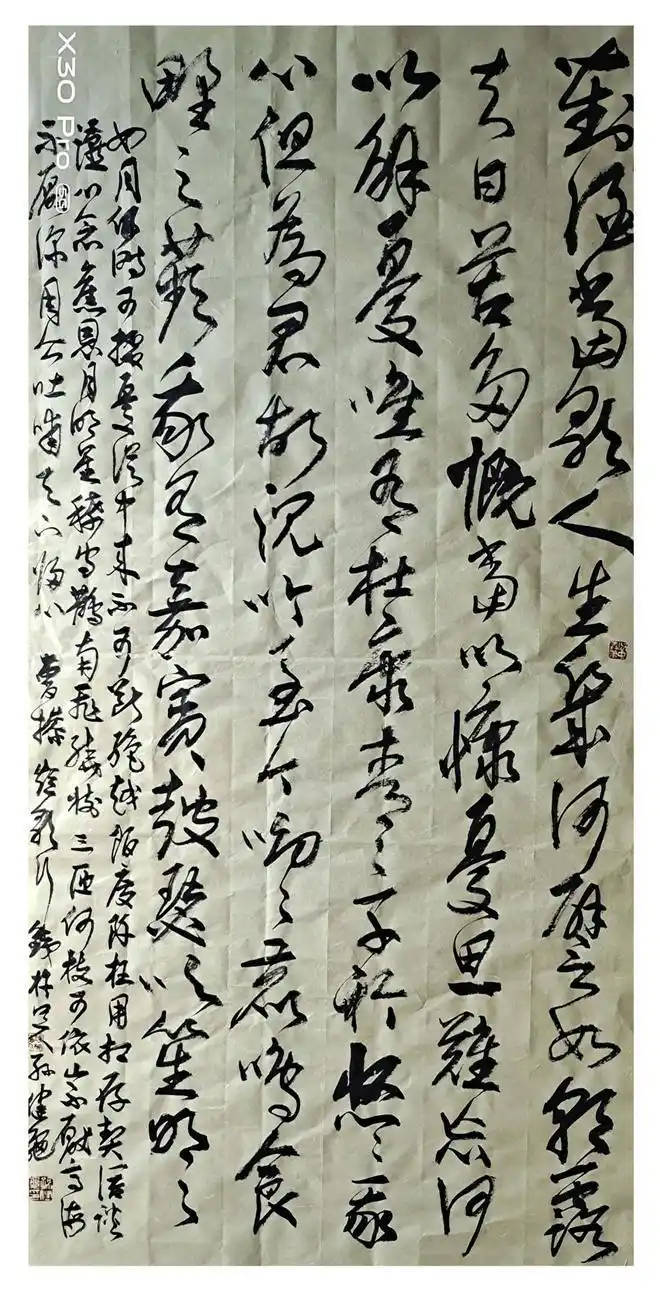 對酒當歌人生幾何譬如朝露
去日苦多慨當以慷憂思難忘何
以解憂唯有杜康青々子衿悠々我
心但為君故沉吟至今呦々鹿鳴食
野之蘋我有嘉賓鼓瑟吹笙明々
如月何時可掇憂從中來不可斷絕越陌度阡枉用相存契闊談
讌心念舊恩月明星稀烏鵲南飛繞樹三匝何枝可依山不厭高海
不厭深周公吐哺天下歸心 曹操 短歌行
X30 Pro